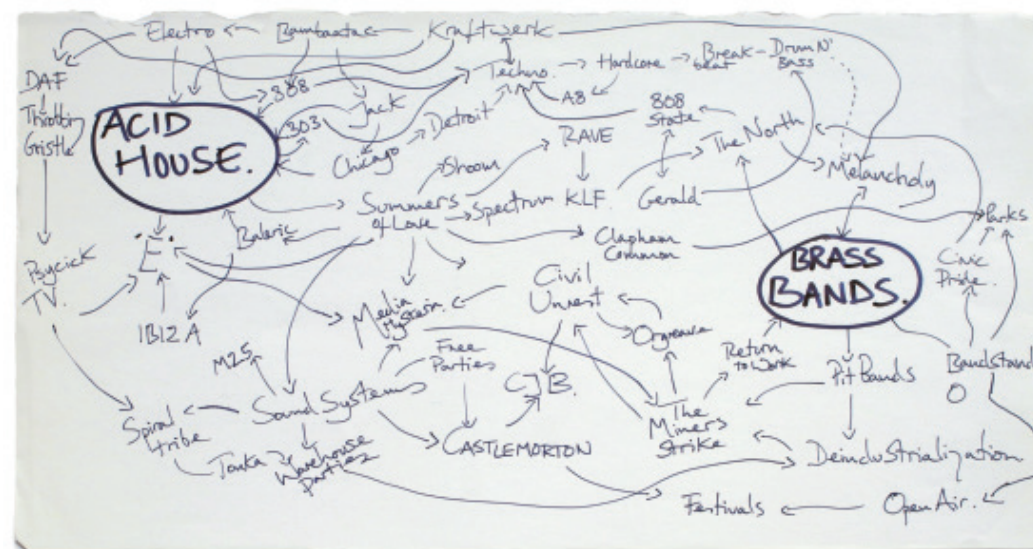 Electro
Bambaataa
Kraftwerk
DAF
Throbbing
Gristle
808
303
Jack
Techno.
Hardcore
Break
beat
Drum N'
Bass
A8
808
State
Detroit
Chicago
ACID
HOUSE.
Shoom
RAVE
The North
Melancholy
Summers
of Love
Spectrum
KLF.
Gerald
Parks
Balaric
Clapham
Common
Civic
Pride.
BRASS
BANDS.
Psycick
TV.
"E".
IBIZA
Media
Hysteria.
Civil
Unrest
Orgreave
Return
to Work
Pit Bands
Bandstand
M25
Free
Parties
CJB.
Sound Systems
The
Miners
Strike
Spiral
tribe
Tonka
Warehouse
Parties
CASTLEMORTON
Deindustrialization
Festivals
Open Air.